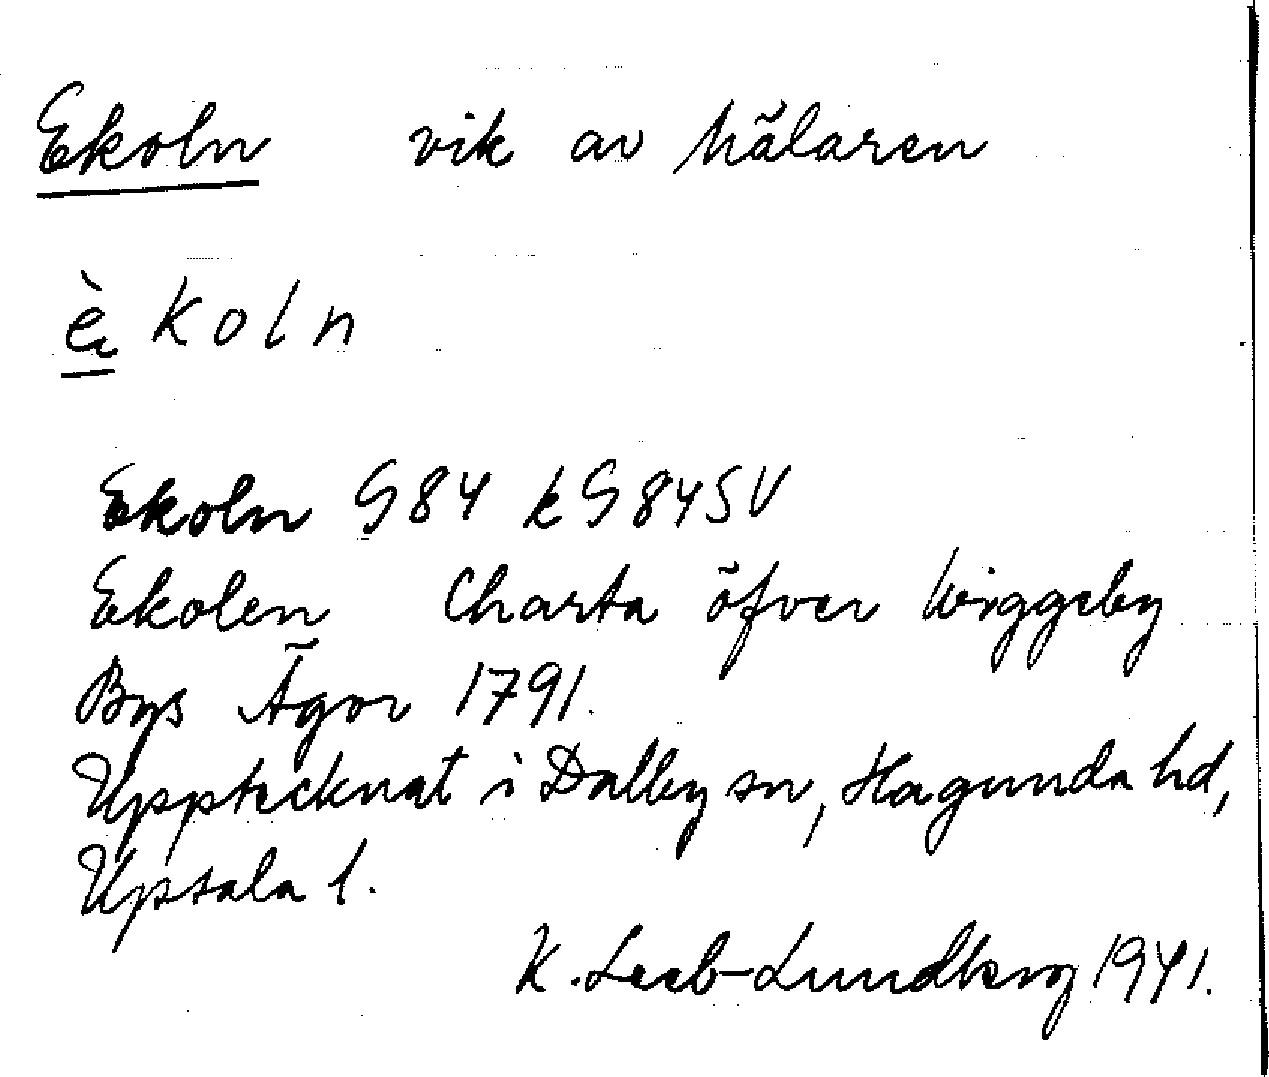 Ekoln vik av Mälaren
è̱ koln
Ekoln G84 kG84SV
Ekolen Charta öfver Wiggeby
Bys Ägor 1791.
Upptecknat i Dalby sn, Hagunda hd,
Upsala l.
K. Leeb-Lundberg 1941.